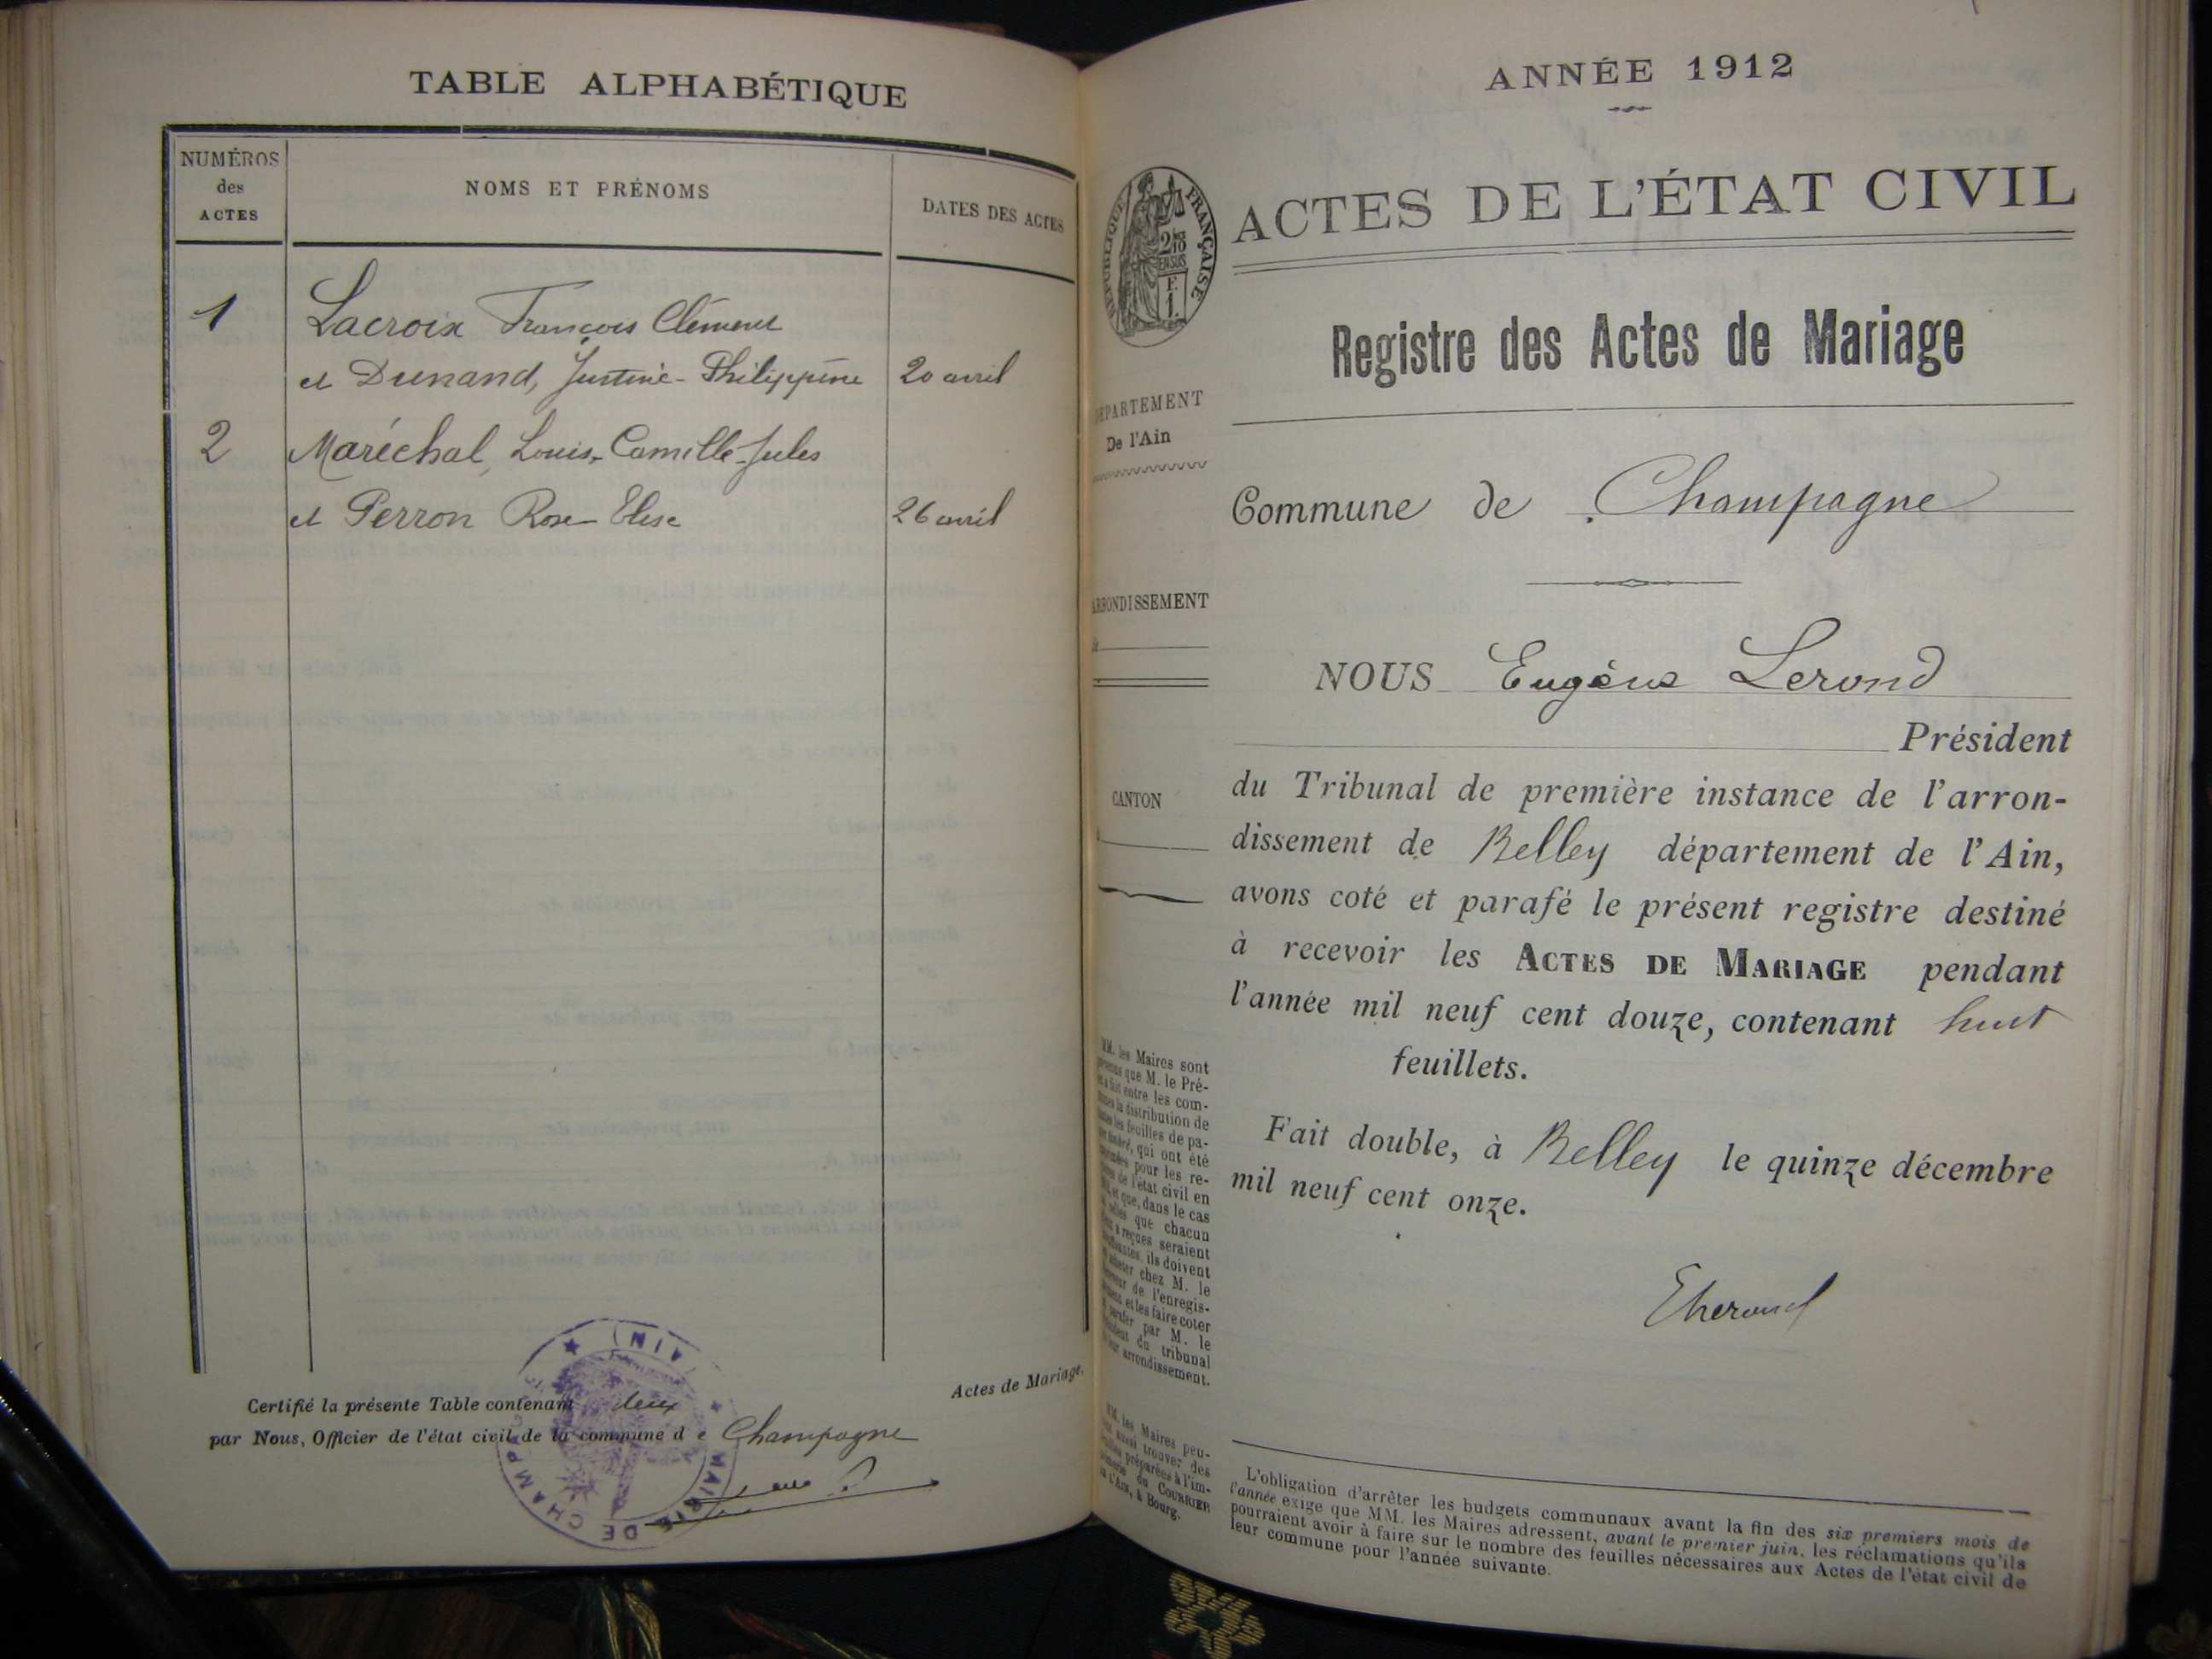 TABLE ALPHABÉTIQUE
NUMÉROS
des
ACTES
NOMS ET PRÉNOMS
DATES DES ACTES
1 Lacroix François Clément
et Dunand, Justine-Philippine 20 avril
2 Maréchal, Louis-Camille-Jules
et Perron Rose Elise 26 avril
Actes de Mariage.
Certifié la présente Table contenant deux
par Nous, Officier de l'état civil de la commune de Champagne
MAIRIE DE CHAMPAGNE (AIN)
ANNÉE 1912
RÉPUBLIQUE FRANÇAISE
ACTES DE L'ÉTAT CIVIL
Registre des Actes de Mariage
DÉPARTEMENT
De l'Ain
Commune de Champagne
ARRONDISSEMENT
NOUS Eugène Lerond
Président
CANTON
du Tribunal de première instance de l'arron-
dissement de Belley département de l'Ain,
avons coté et parafé le présent registre destiné
à recevoir les ACTES DE MARIAGE pendant
l'année mil neuf cent douze, contenant huit
feuillets.
Fait double, à Belley le quinze décembre
mil neuf cent onze.
MM. les Maires sont
que M. le Pré-
entre les com-
la distribution de
les feuilles de pa-
qui ont été
pour les re-
de l'état civil en
et que, dans le cas
que chacun
reçues seraient
ils doivent
chez M. le
de l'enregis-
et les faire coter
par M. le
du tribunal
arrondissement.
MM. les Maires peu-
trouver des
préparées à l'im-
du COURRIER
de l'Ain, à Bourg.
L'obligation d'arrêter les budgets communaux avant la fin des six premiers mois de
l'année exige que MM. les Maires adressent, avant le premier juin, les réclamations qu'ils
pourraient avoir à faire sur le nombre des feuilles nécessaires aux Actes de l'état civil de
leur commune pour l'année suivante.